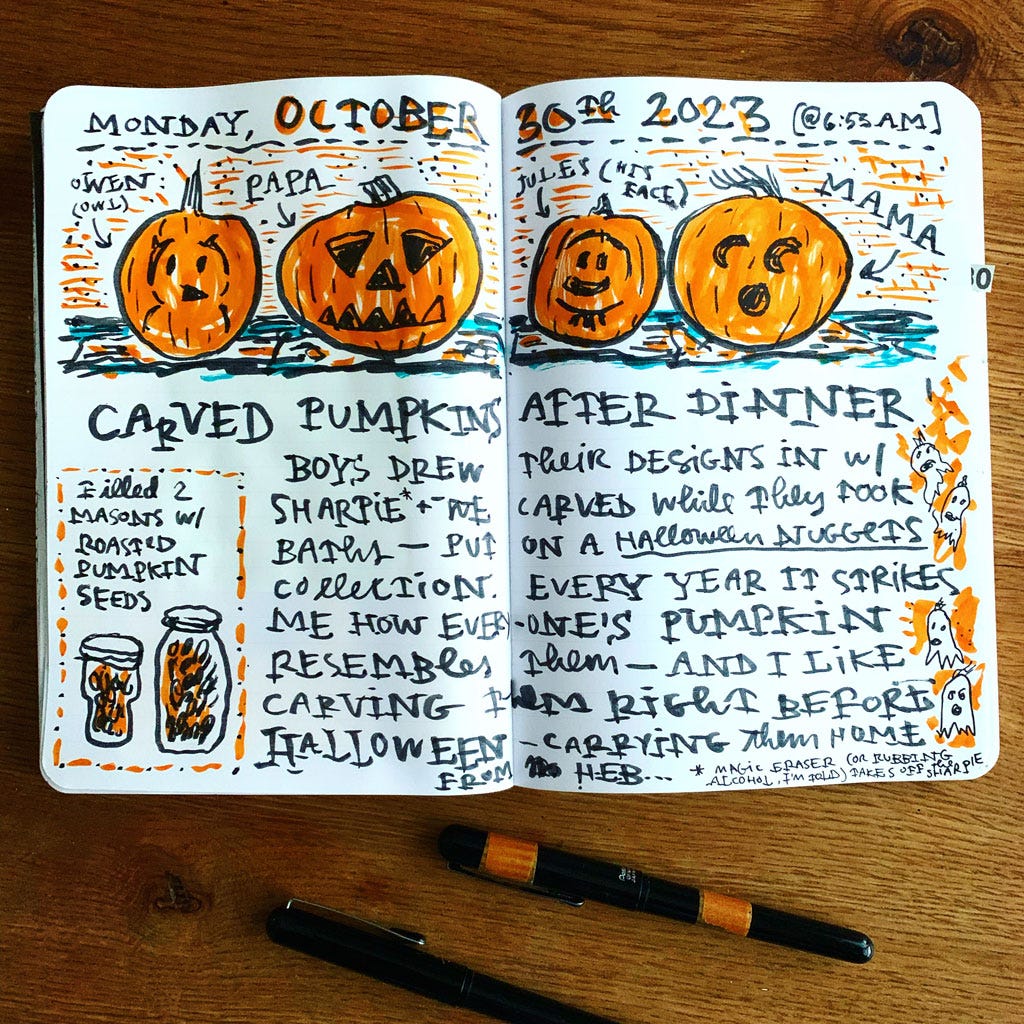 MONDAY, OCTOBER 30th 2023 [@6:53AM]
OWEN:
(OWL)
PAPA
JULES (HIS
FACE)
MAMA
30
CARVED PUMPKINS AFTER DINNER
BOYS DREW THEIR DESIGNS IN W/
SHARPIE* + WE CARVED while they TOOK
BATHS — PUT ON A HALLOWEEN NUGGETS
COLLECTION. EVERY YEAR IT STRIKES
ME HOW EVERY-ONE'S PUMPKIN
RESEMBLES THEM — AND I LIKE
CARVING THEM RIGHT BEFORE
HALLOWEEN — CARRYING them HOME
FROM HEB...
Filled 2
MASONS W/
ROASTED
PUMPKIN
SEEDS
* MAGIC ERASER (OR RUBBING
ALCOHOL, I'M TOLD) TAKES OFF the SHARPIE